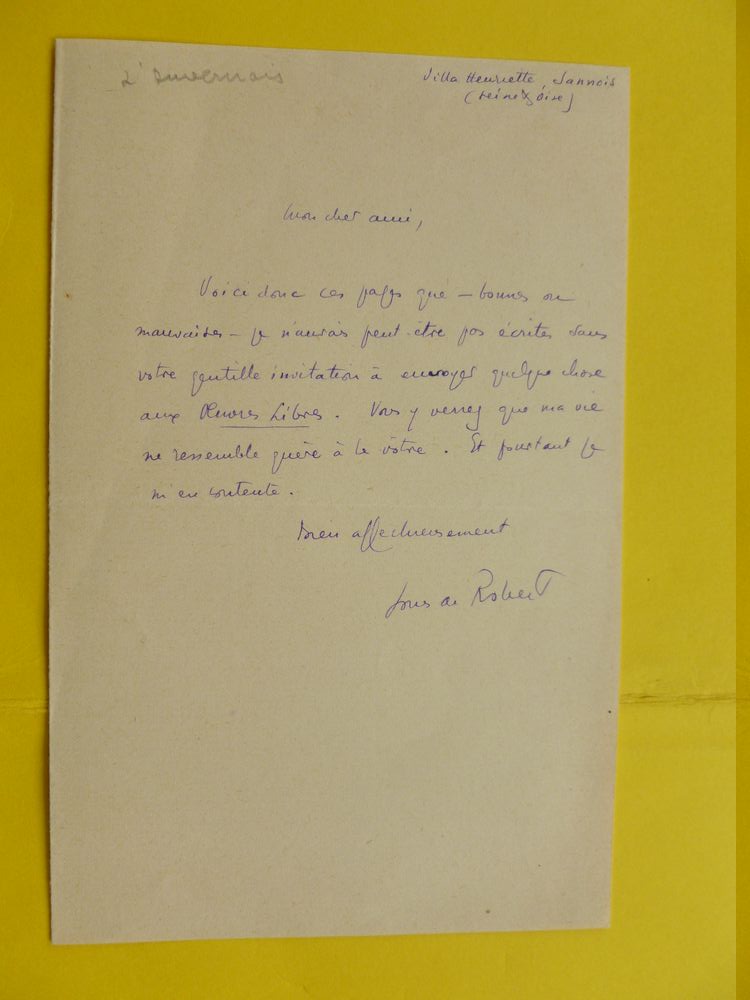 à Duvernois
Villa Henriette, Sannois
(Seine & Oise)
Mon cher ami,
Voici donc ces pages que – bonnes ou
mauvaises – je n'aurais peut-être pas écrites sans
votre gentille invitation à envoyer quelque chose
aux Œuvres Libres. Vous y verrez que ma vie
ne ressemble guère à la vôtre. Et pourtant je
m'en contente.
Bien affectueusement
Louis de Robert